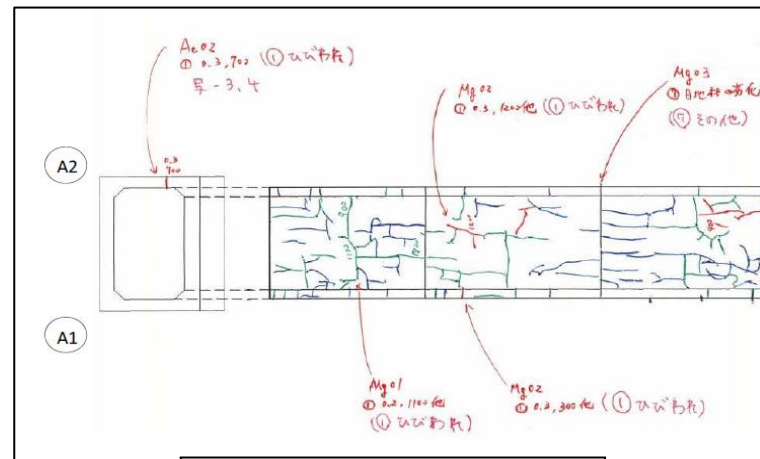 Ac02
① 0.3, 702 (① ひびわれ)
写-3.4
Mg02
① 0.3, 1200他 (① ひびわれ)
Mg03
⑦ 目地材の劣化
(⑦ その他)
A2
0.3
700
900
1100
A1
Mg01
① 0.2, 1100他
(① ひびわれ)
Mg02
① 0.3, 300他 (① ひびわれ)